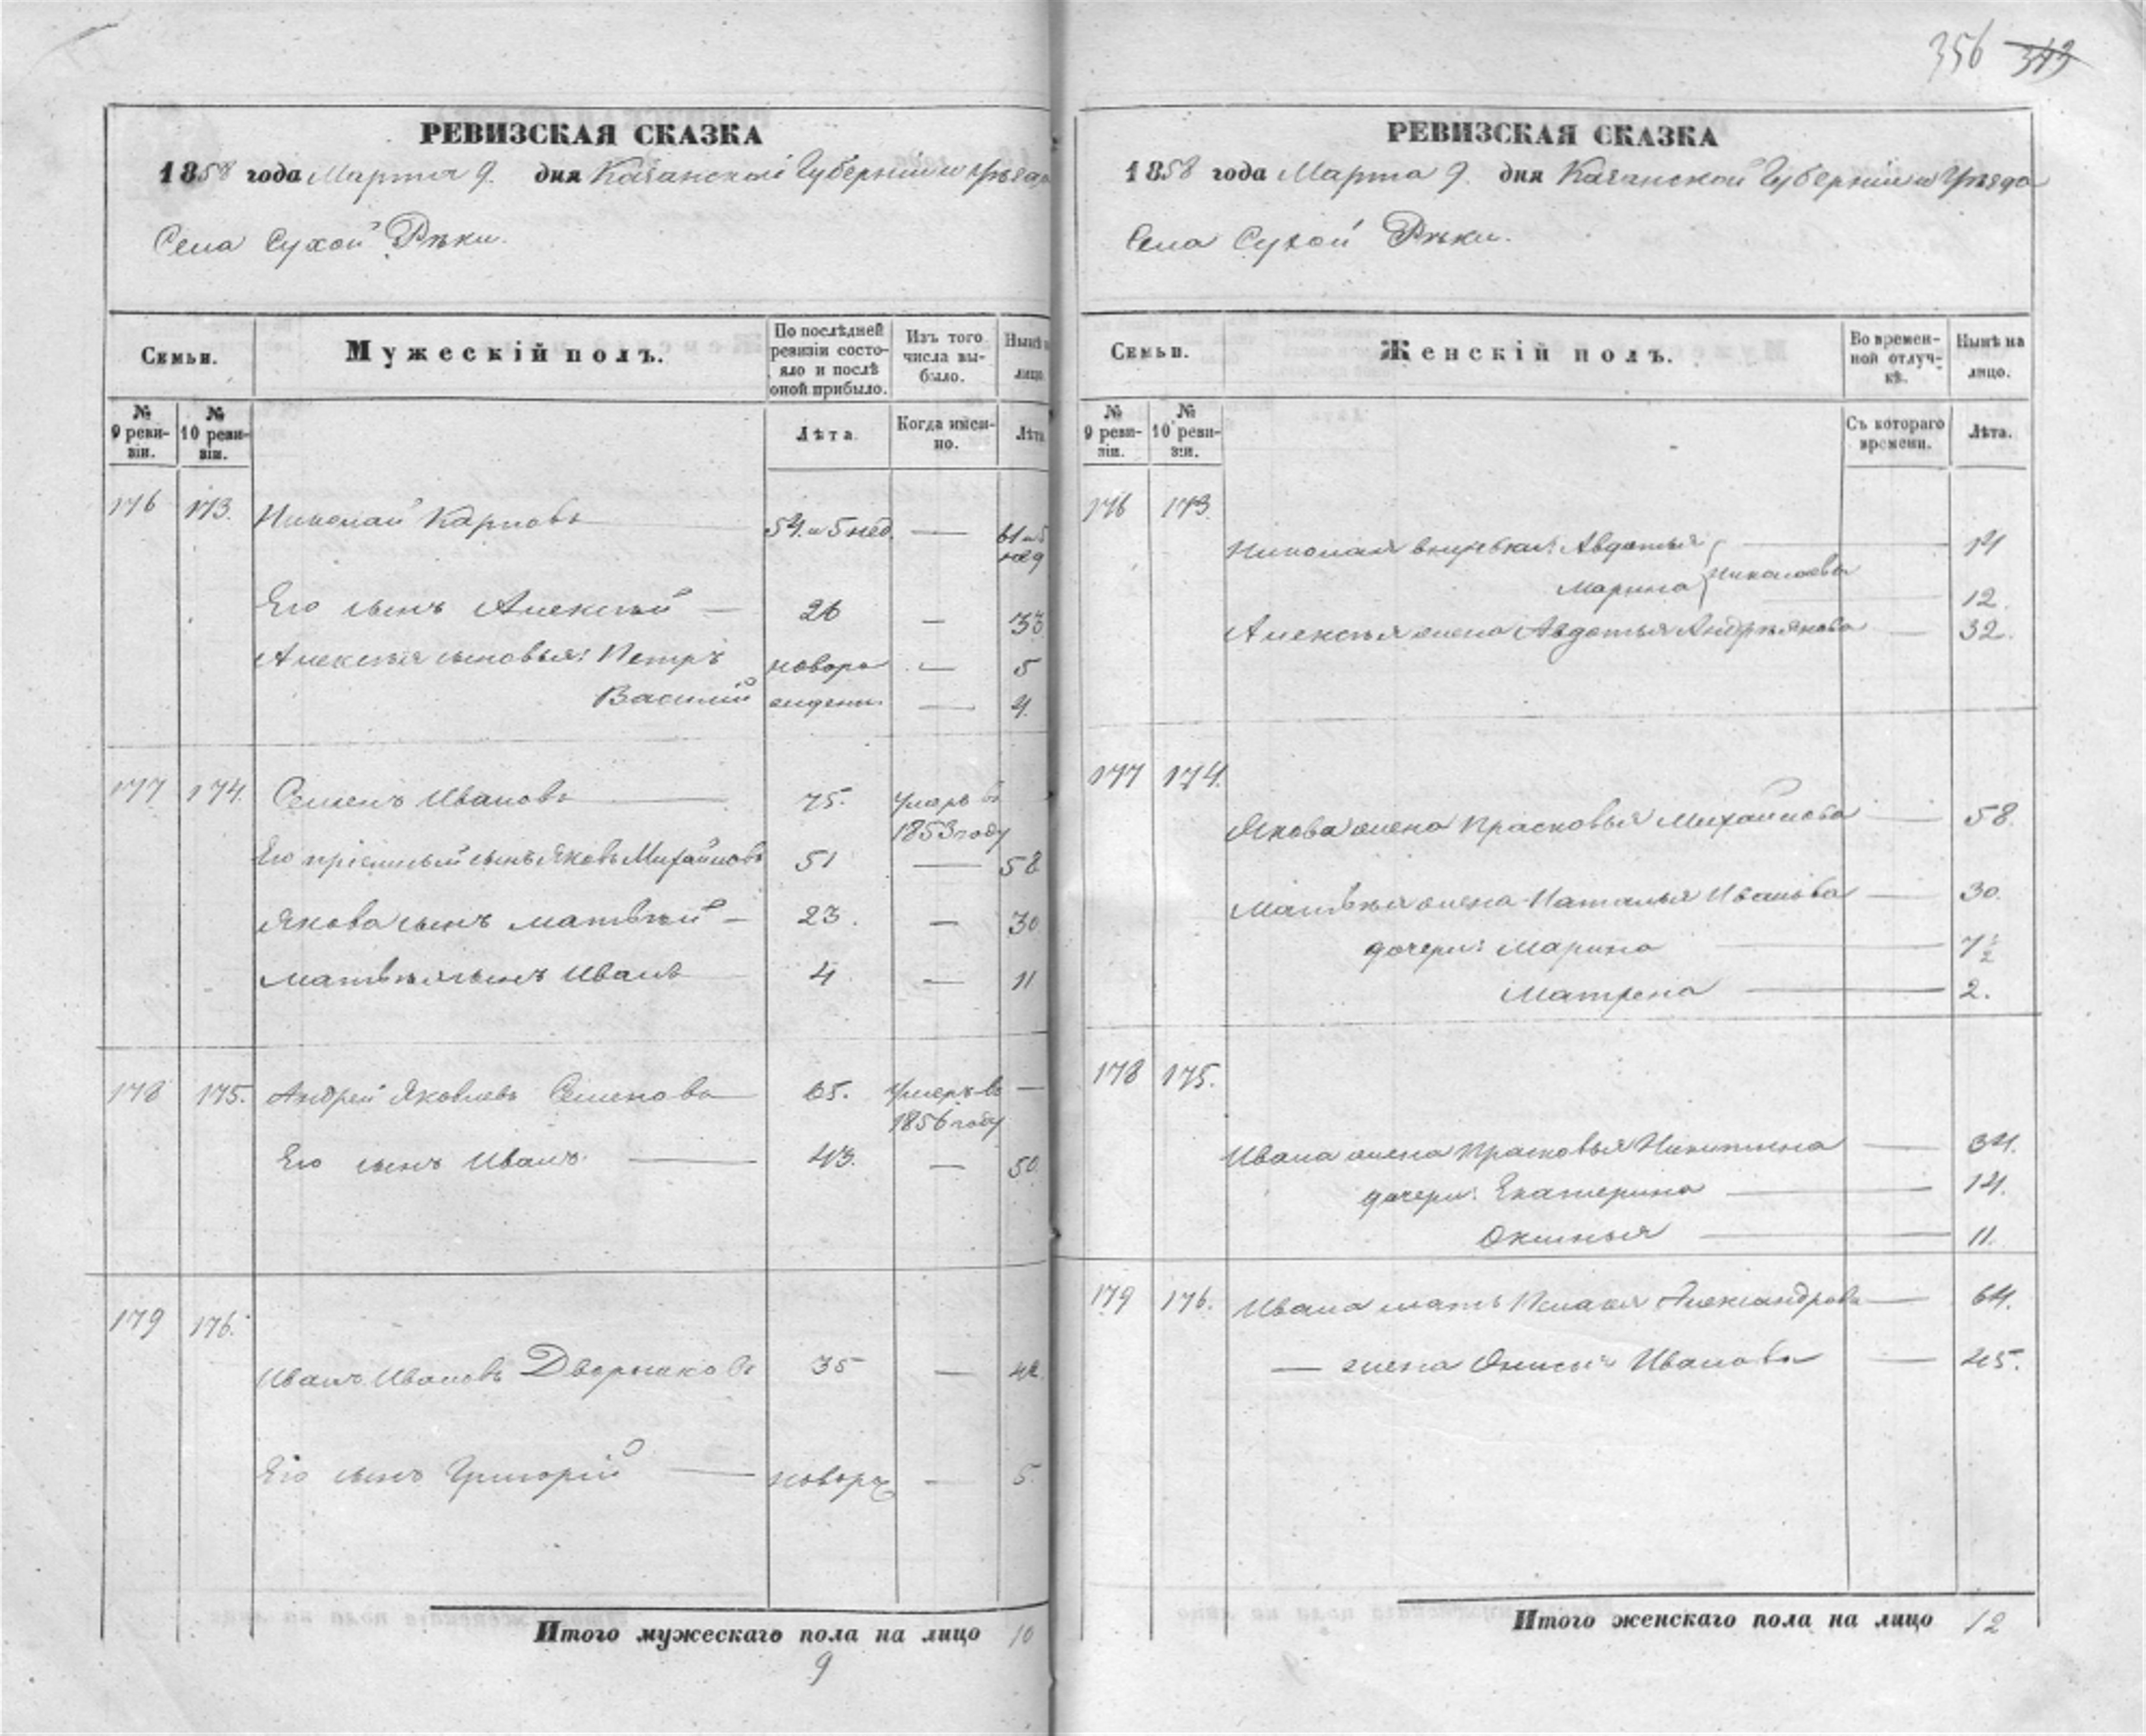 356 343
РЕВИЗСКАЯ СКАЗКА
1858 года Марта 9. дня Казанской Губерніи и уѣзда
Села Сухой Рѣки.
Семьи.
Мужескій полъ.
По послѣдней ревизіи состояло и послѣ оной прибыло.
Изъ того числа вы-было.
Нынѣ на лицо.
№ 9 реви-зіи.
№ 10 реви-зіи.
Лѣта.
Когда имен-но.
Лѣта
176 173. Николай Карповъ 54. и 5 нед. — 61 и 5 нед
Его сынъ Алексѣй — 26 — 33
Алексѣя сыновья: Петръ новоро — 5
Василій жденн. — 4.
177 174. Семенъ Ивановъ 75. умеръ въ 1853 году
Его пріемный сынъ Яковъ Михайловъ 51 — 58
Якова сынъ Матвѣй — 23. — 30
Матвѣя сынъ Иванъ 4 — 11
178 175. Андрей Яковлевъ Семеновъ 65. умеръ въ 1856 году —
Его сынъ Иванъ — 43. — 50.
179 176.
Иванъ Ивановъ Дворникова 35 — 42.
Его сынъ Григорій — новорж — 5.
Итого мужескаго пола на лицо 10
9
РЕВИЗСКАЯ СКАЗКА
1858 года Марта 9. дня Казанской Губерніи и уѣзда
Села Сухой Рѣки.
Семьи.
Женскій полъ.
Во времен-ной отлуч-кѣ.
Нынѣ на лицо.
№ 9 реви-зіи.
№ 10 реви-зіи.
Съ котораго времени.
Лѣта.
176 173.
Николая внучки: Авдотья — 14
Марина Николаевы 12.
Алексѣя жена Авдотья Андрѣянова — 32.
177 174.
Якова жена Прасковья Михайлова — 58.
Матвѣя жена Наталья Иванова — 30.
дочери: Марина — 7½
Матрена — 2.
178 175.
Ивана жена Прасковья Никитина — 34.
дочери: Екатерина — 14.
Оксинья — 11.
179 176. Ивана мать Пелагея Александрова — 64.
— жена Онисья Иванова — 45.
Итого женскаго пола на лицо 12